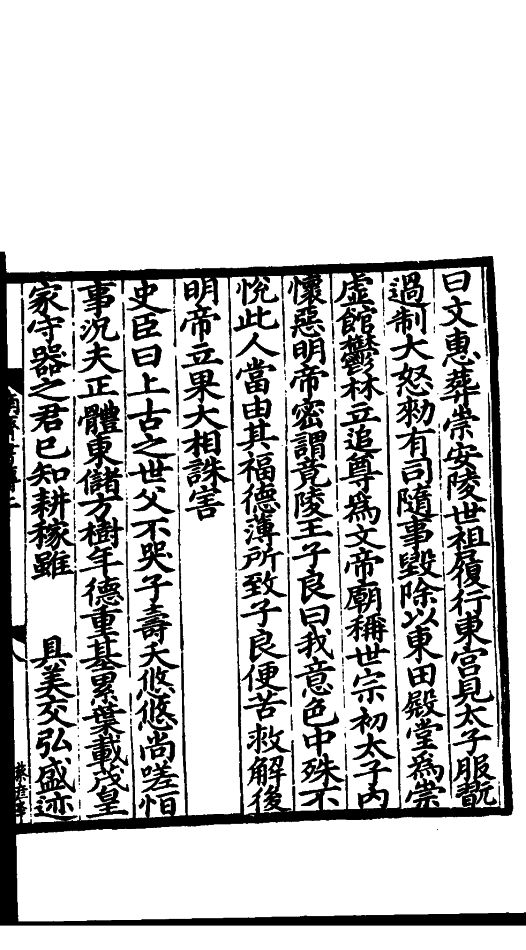 曰文惠葬崇安陵世祖履行東宮見太子服翫
過制大怒勑有司隨事毀除以東田殿堂爲崇
虛館鬱林立追尊爲文帝廟稱世宗初太子內
懷惡明帝密謂竟陵王子良曰我意色中殊不
悅此人當由其福德薄所致子良便苦救解後
明帝立果大相誅害
史臣曰上古之世父不哭子壽夭悠悠尚嗟恒
事況夫正體東儲方樹年德重基累葉載茂皇
家守器之君已知耕稼雖　　具美交弘盛迹